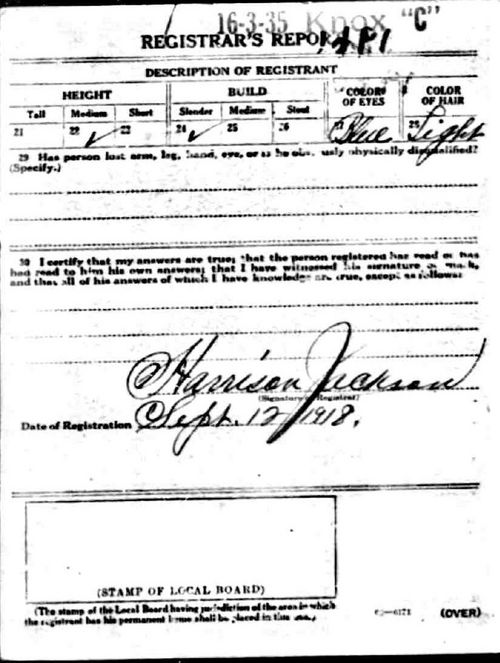 16-3-35 Knox "C"
REGISTRAR'S REPORT
DESCRIPTION OF REGISTRANT
HEIGHT BUILD COLOR OF EYES COLOR OF HAIR
Tall Medium Short Slender Medium Stout
21 22 ✓ 23 24 ✓ 25 26 Blue 28 Light
29 Has person lost arm, leg, hand, eye, or is he obviously physically disqualified?
(Specify.)
30 I certify that my answers are true; that the person registered has read or has
had read to him his own answers; that I have witnessed his signature or mark,
and that all of his answers of which I have knowledge are true, except as follows:
Harrison Jackson
(Signature of Registrar)
Date of Registration Sept. 12 1918.
(STAMP OF LOCAL BOARD)
(The stamp of the Local Board having jurisdiction of the area in which
the registrant has his permanent home shall be placed in this box.)
(OVER)